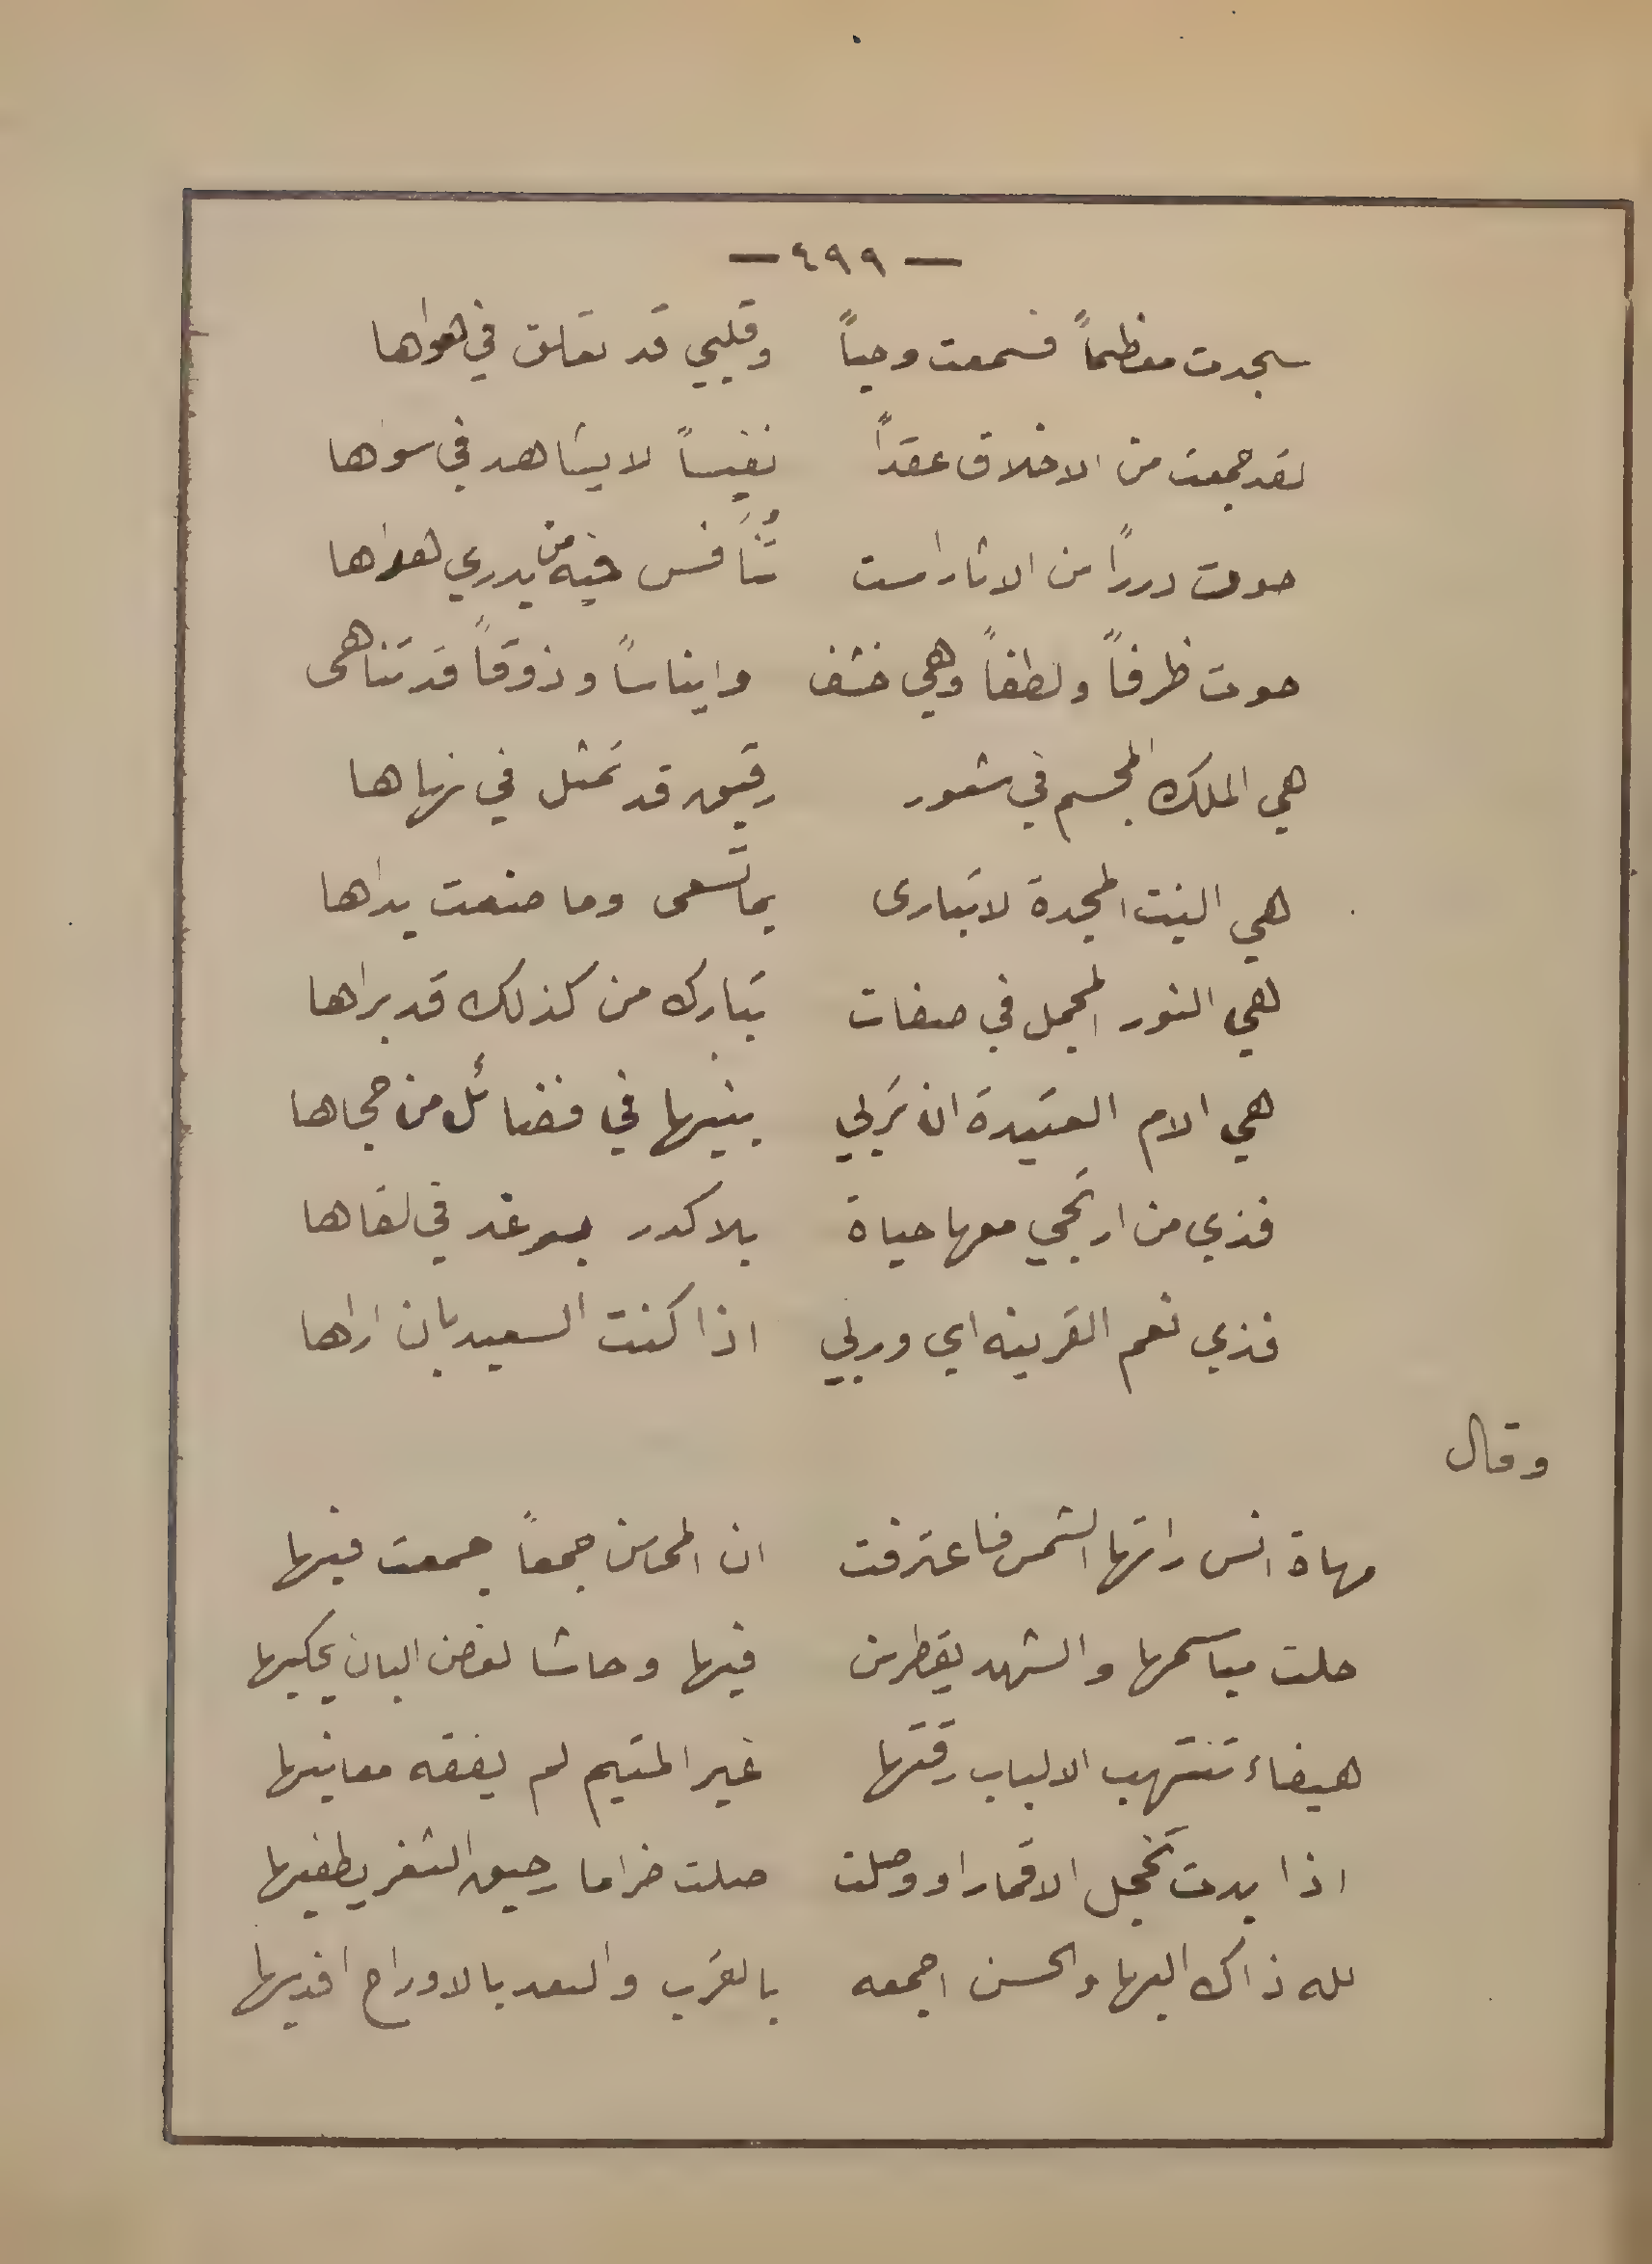 — ٤٩٩ —
سجدت معظماً فسمعت وحياً وقلبي قد تعلق في هواها
لقد جمعت من الاخلاق عقداً نفيساً لا يشاهد في سواها
حوت درراً من الاثار امست تُنَافس فيه من يدري لغداها
حوت ظرفاً ولطفاً وهي خشف وايناساً وذوقاً قد تناهى
هي الملك المجسم في شعور رقيق قد تمثل في نهاها
هي البنت المجدة لا تبارى بما تسعى وما صنعت يداها
هي النور المجمل في صفات تبارك من كذلك قد براها
هي الام العتيدة ان تربي بنيها في فضائل من حجاها
فذي من ارتجي معها حياة بلا كدر برغد في لقاها
فذي نعم القرينه اي وربي اذا كنت السعيد بان اراها
وقال
مهاة انس راتها الشمس فاعترفت ان المحاسن جمعاً جمعت فيها
حلت مباسمها والشهد يقطر من فيها وحاشا لغصن البان يحكيها
هيفاء تنتهب الالباب رقتها غير المتيم لم يفقه معانيها
اذا بدت تخجل الاقمار او وصلت صلت ضراما رحيق الثغر يطفيها
لله ذاك البها والحسن اجمعه بالقرب والبعد بالاوراح افديها